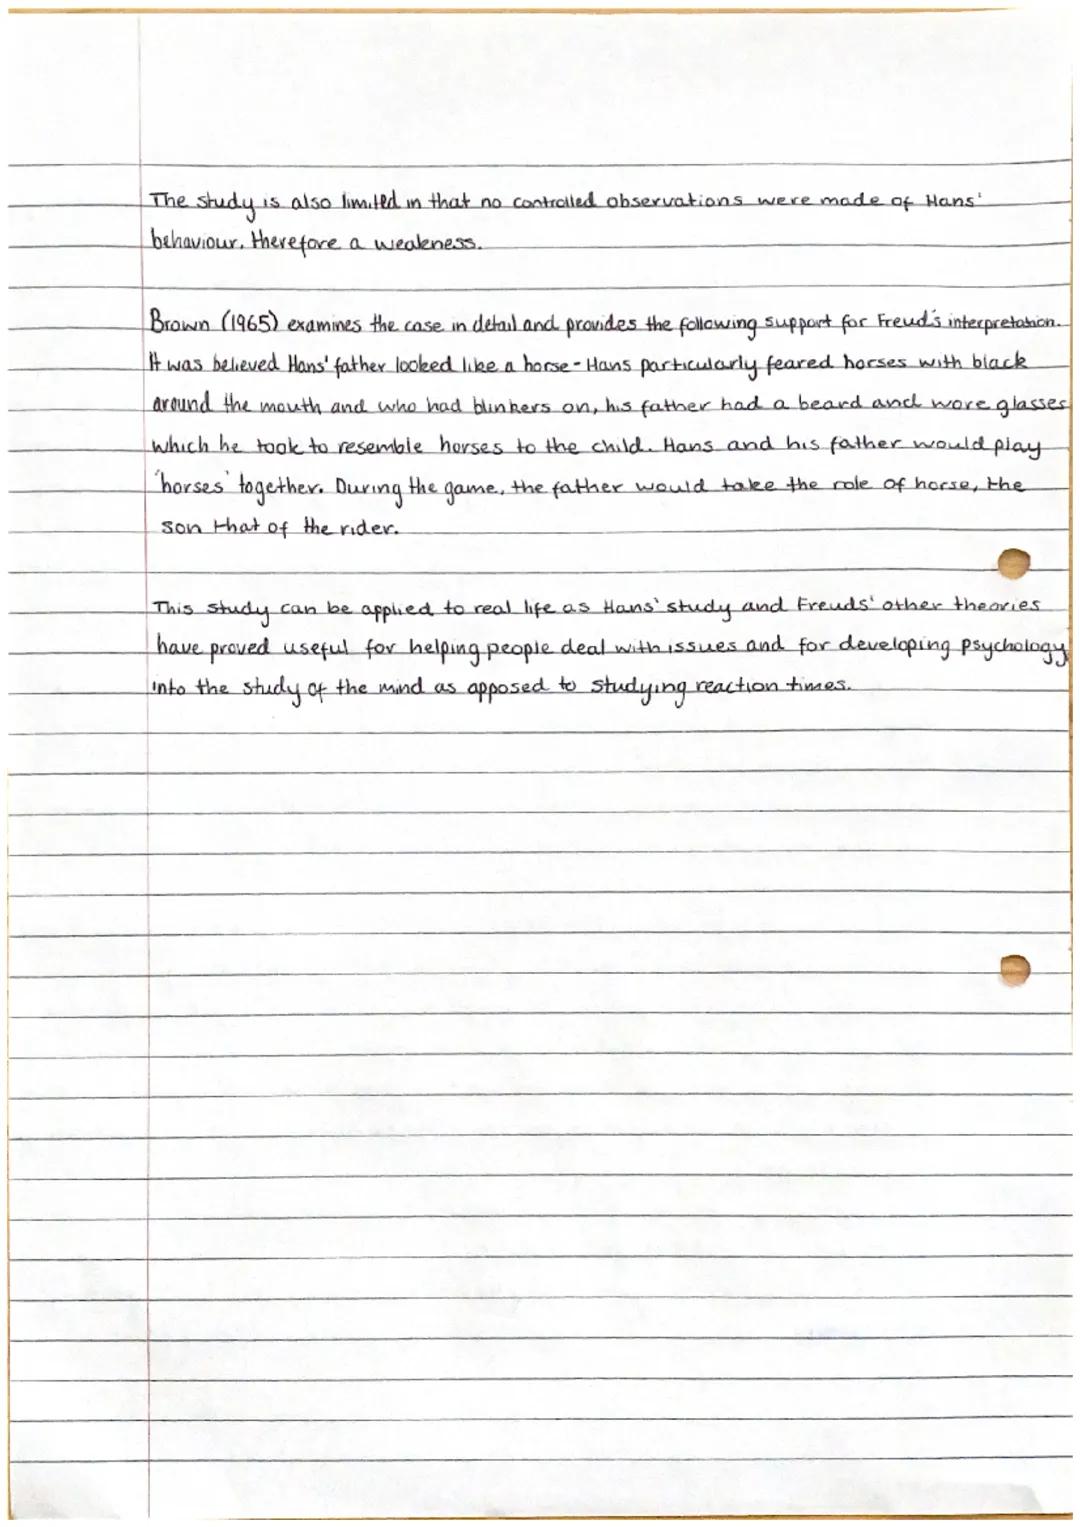 The study is also limited in that no controlled observations were made of Hans'
behaviour, therefore a weakness.
Brown (1965) examines the case in detail and provides the following support for Freud's interpretation.
It was believed Hans' father looked like a horse - Hans particularly feared horses with black
around the mouth and who had blinkers on, his father had a beard and wore glasses
which he took to resemble horses to the child. Hans and his father would play
'horses' together. During the game, the father would take the role of horse, the
son that of the rider.
This study can be applied to real life as Hans' study and Freuds' other theories
have proved useful for helping people deal with issues and for developing psychology
into the study of the mind as opposed to studying reaction times.